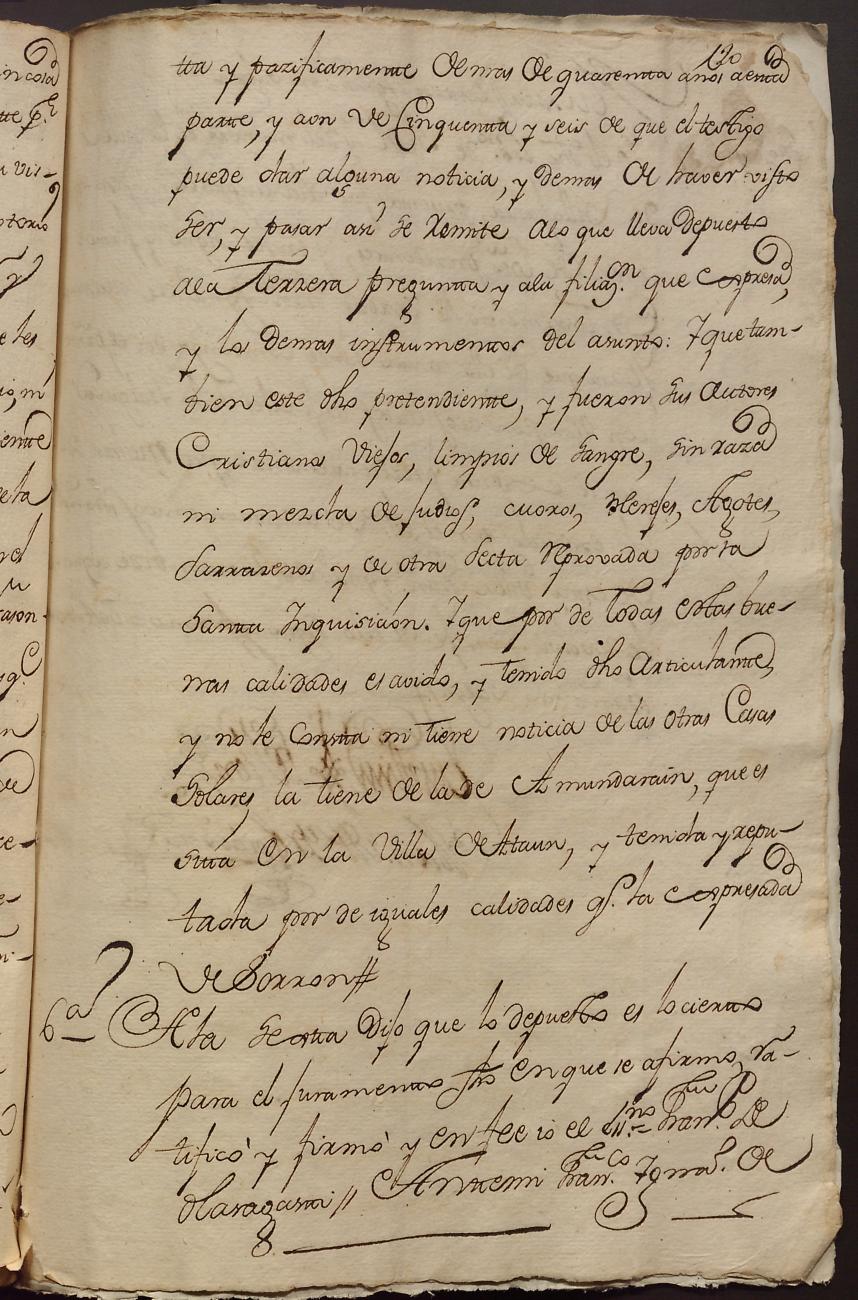 120
tta y pazificamente de mas de quarenta años a esta
parte, y aon de Cinquenta y seis de que el testigo
puede dar alguna noticia, y demas de haver visto
Ser, y pasar asi se Remite alo que lleva Depuesto
ala Terzera pregunta y ala filiazn. que expresa,
y los demas instrumentos del asunto: Y que tam-
bien este dho pretendiente, y fueron sus Autores
Cristianos Viejos, limpios de Sangre, sin raza
ni mezcla de Judios, Herejes, Agotes,
Sarrazenos y de otra Secta Reprovada por la
Santa Inquisición. Y que por de Todas estas bue-
nas calidades es avido, y tenido dho Articulante,
y no le Consta ni tiene noticia de las otras Casas
Solares, la tiene de la de Amundarain, que es
sitta en la Villa de Ataun, y tenida y repu-
tada por de iguales calidades q. la expresada
de Borron
6a A la Sexta Dijo que lo depuesto es lo cierto
para el Juramento fho en que se afirmo, ra-
tificó y firmó y en fee io el ssno. Franco De
Antemi Franco Ygnao. de